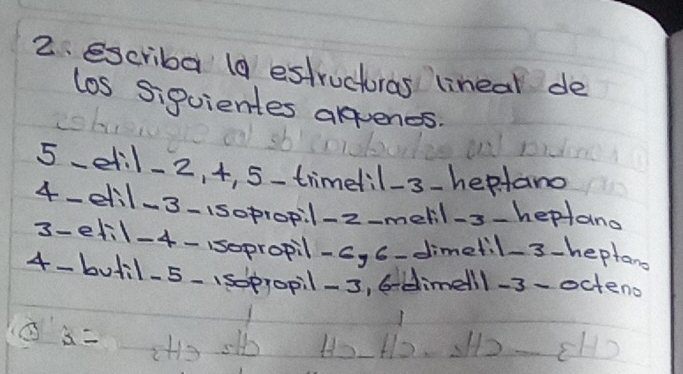 2. Escriba la estructuras lineal de
los siguientes alquenos.
5-etil-2,4,5-trimetil-3-heptano
4-etil-3-isopropil-2-metil-3-heptano
3-etil-4-isopropil-6,6-dimetil-3-heptano
4-butil-5-isopropil-3,6-dimetil-3-octeno